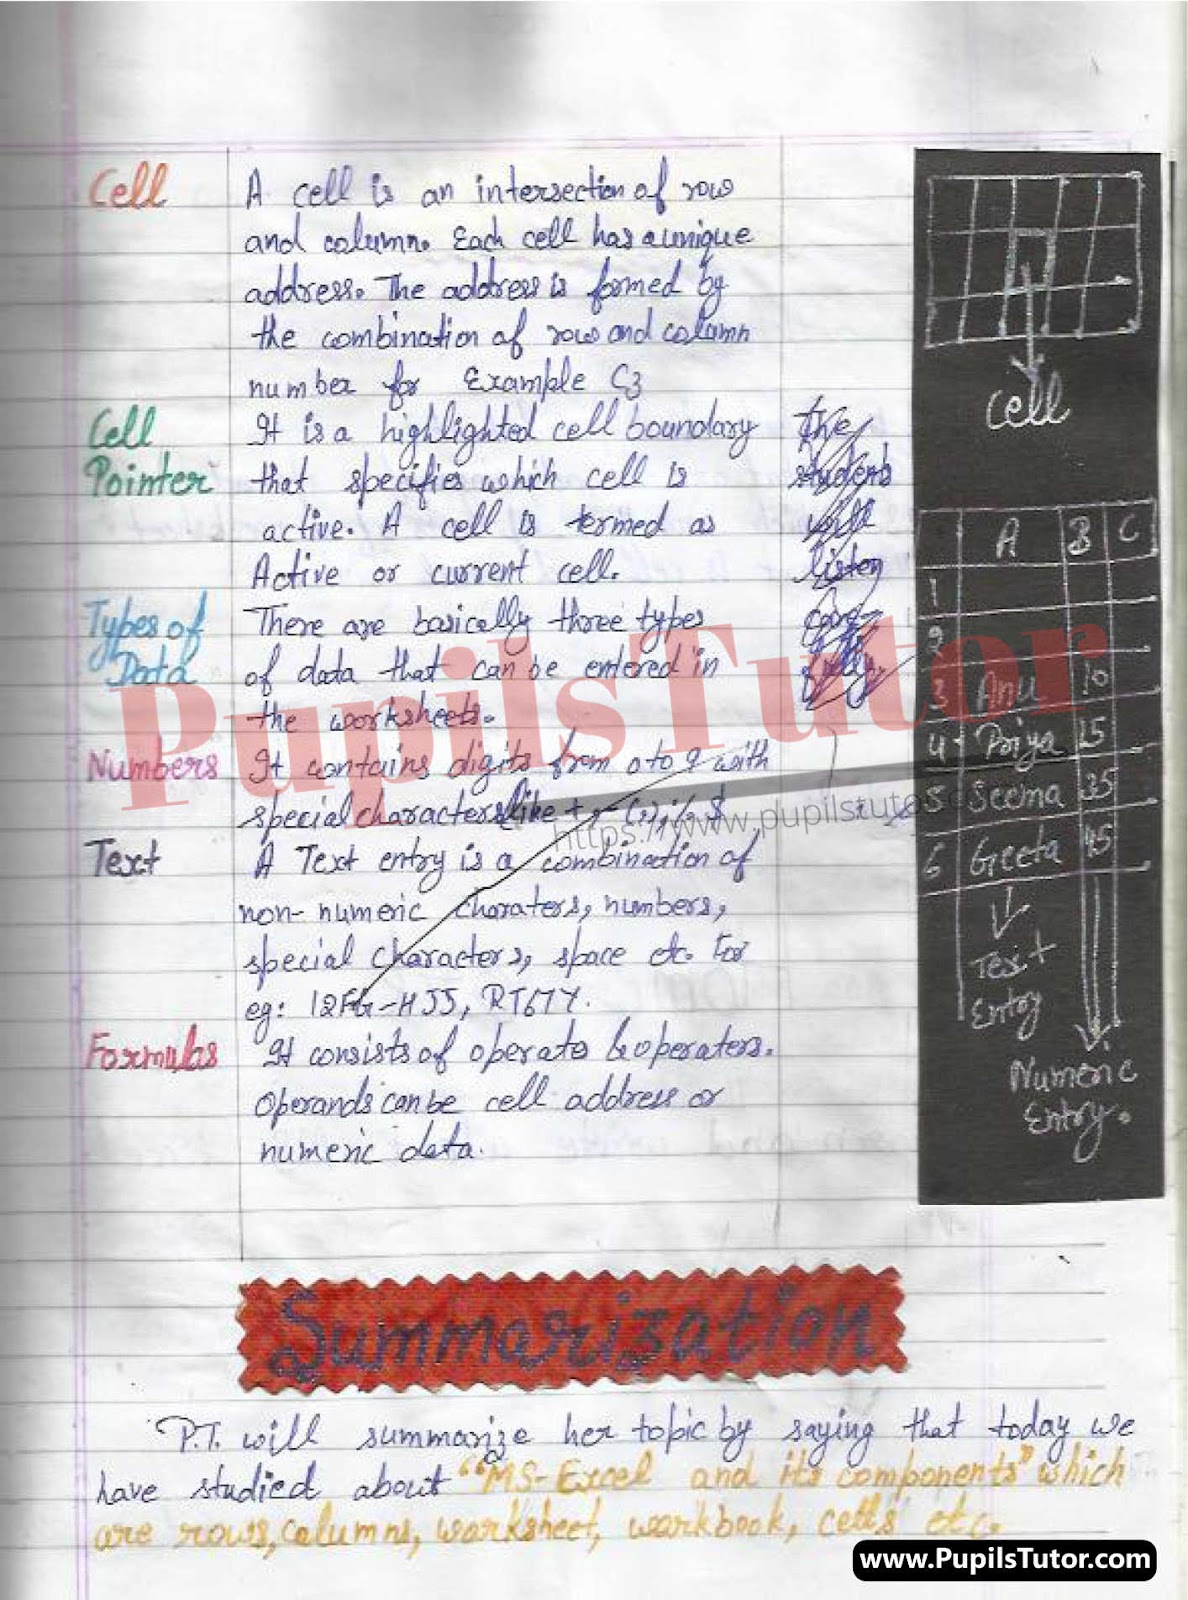 Cell
A cell is an intersection of row
and column. Each cell has a unique
address. The address is formed by
the combination of row and column
number for Example C3
Cell
Pointer
It is a highlighted cell boundary
that specifies which cell is
active. A cell is termed as
Active or current cell.
the
students
will
listen
Types of
Data
There are basically three types
of data that can be entered in
the worksheets.
Numbers
It contains digits from 0 to 9 with
special characters like +, -
Text
A Text entry is a combination of
non-numeric charaters, numbers,
special characters, space etc. For
eg: 12FG-HJJ, RT67Y.
Formulas
It consists of operato & operaters.
Operands can be cell address or
numeric data.
Cell
A B C
1
2
3 Anu 10
4 Priya 15
5 Seema 35
6 Geeta 45
Text
Entry
Numeric
Entry.
Summarization
P.T. will summarize her topic by saying that today we
have studied about "MS-Excel and its components" which
are rows, columns, worksheet, workbook, cells etc.
PupilsTutor
https://www.pupilstutor
www.PupilsTutor.com